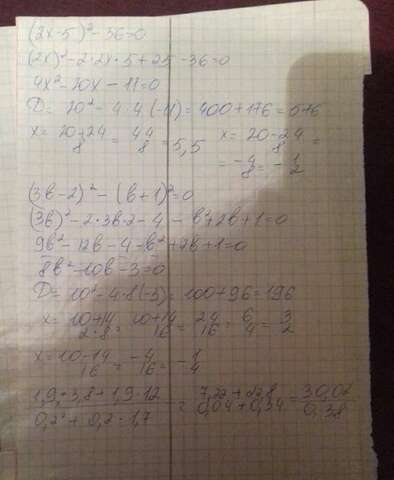 (2x-5)²-36=0
(2x)²-2·2x·5+25-36=0
4x²-20x-11=0
D= 20²-4·4·(-11)=400+176=576
x= 20+24/8 = 44/8 = 5,5 x= 20-24/8 =
= -4/8 = -1/2
(3b-2)²-(b+1)²=0
(3b)²-2·3b·2-4-b²+2b+1=0
9b²-12b-4-b²+2b+1=0
8b²-10b-3=0
D= 10²-4·8(-3)=100+96=196
x= 10+14/2·8 = 10+14/16 = 24/16 = 6/4 = 3/2
x= 10-14/16 = -4/16 = -1/4
1,9·3,8+1,9·12/0,2²+0,2·1,7 = 7,22+22,8/0,04+0,34 = 30,02/0,38